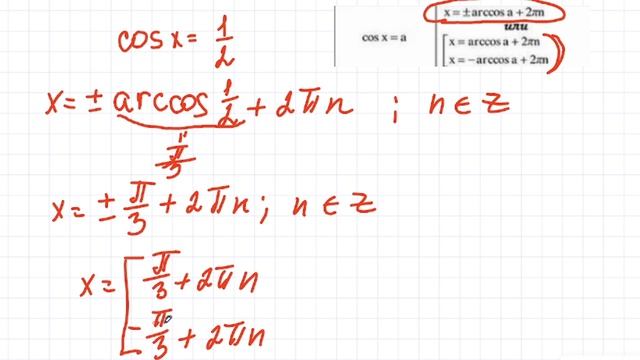 cos x = 1/2
cos x = a
x = ±arccos a + 2πn
или
x = arccos a + 2πn
x = −arccos a + 2πn
x = ± arccos 1/2 + 2πn ; n ∈ z
π/3
x = ± π/3 + 2πn ; n ∈ z
x = [ π/3 + 2πn
− π/3 + 2πn